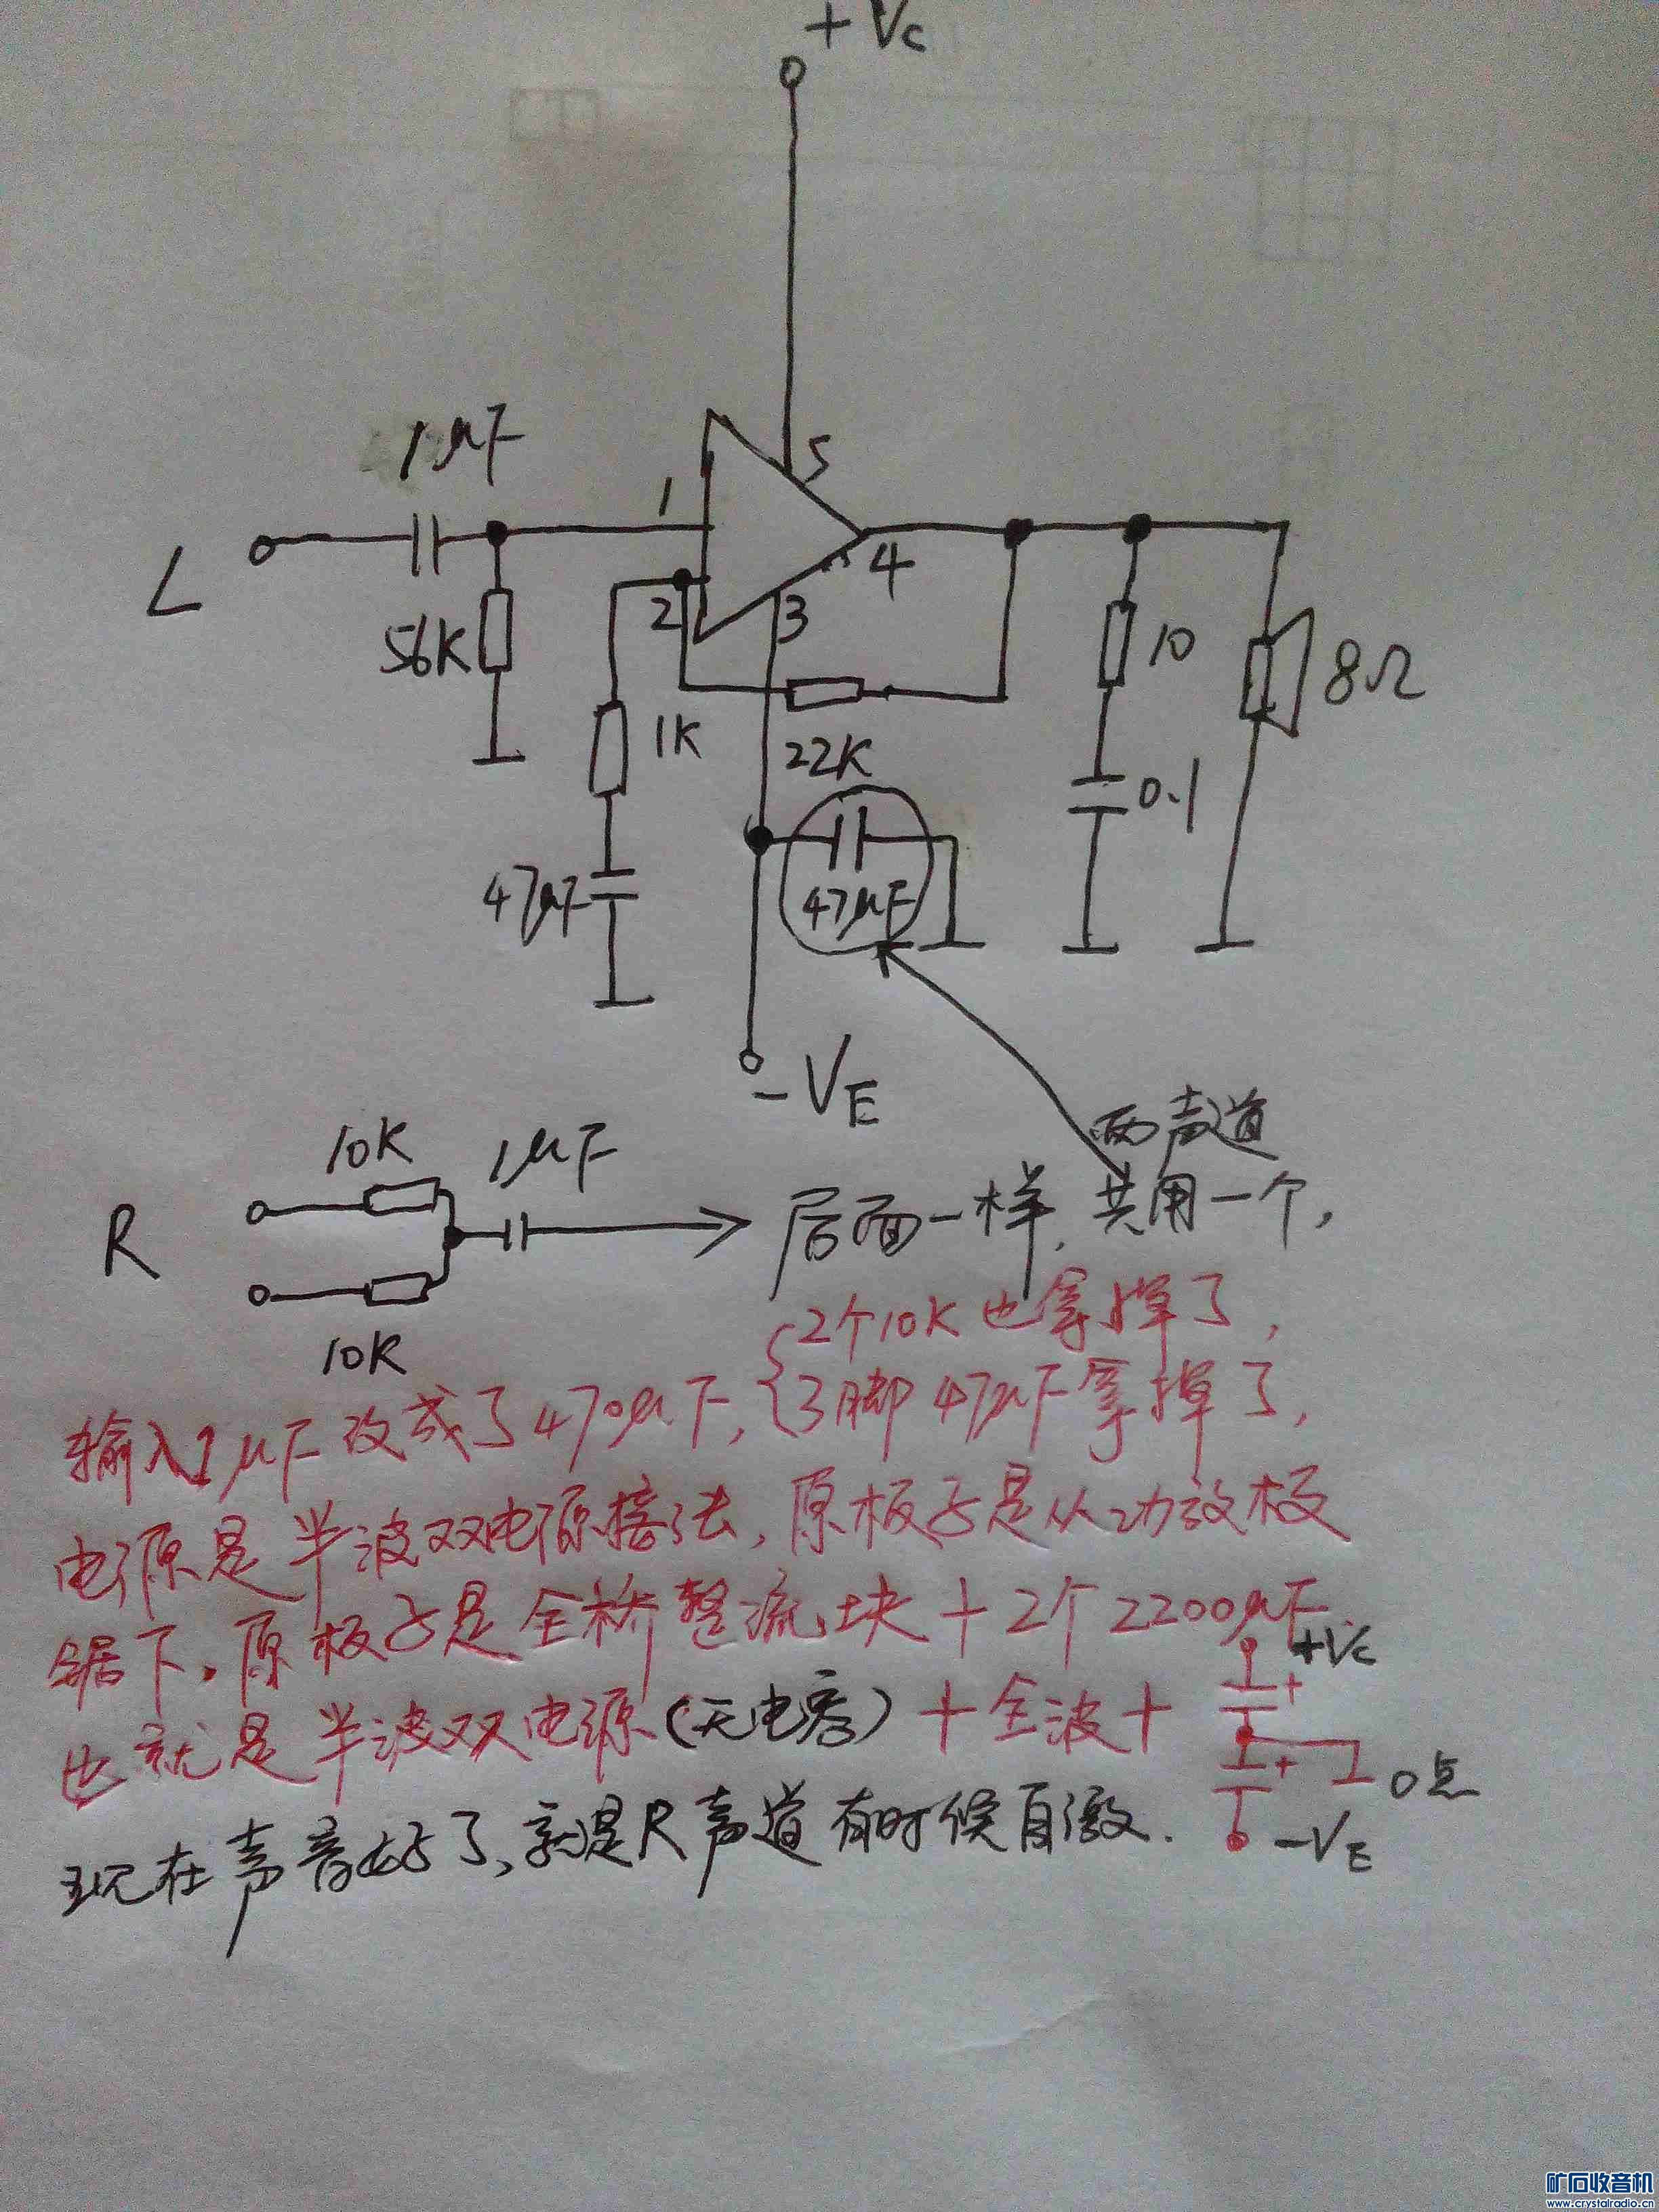 +Vc
1μF
5
1
L
4
2
3
56K
10
8Ω
1K
22K
0.1
47μF
47μF
-VE
两声道
10K
1μF
R
后面一样,共用一个,
10K
2个10K也拿掉了,
输入1μF改成了470μF,3脚47μF拿掉了,
电源是半波双电源接法,原板子是从功放板
锯下.原板子是全桥整流块+2个2200μF
+Vc
也就是半波双电源(无电容)+全波+
+
+
0点
-VE
现在声音好了,就是R声道有时候自激.
矿石收音机
www.crystalradio.cn